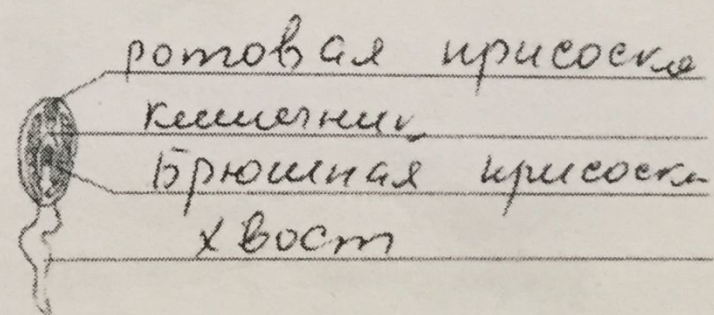 ротовая присоска
кишечник
Брюшная присоска
хвост